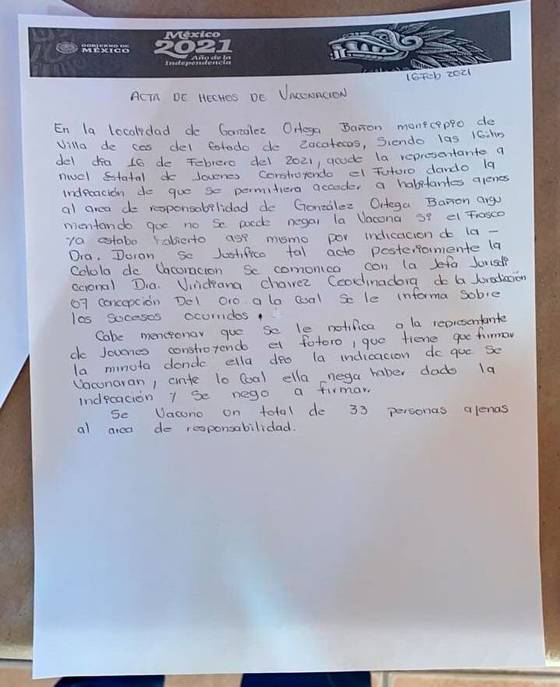 GOBIERNO DE
MÉXICO
México
2021
Año de la
Independencia
16 Feb 2021
ACTA DE HECHOS DE VACUNACION
En la localidad de González Ortega Bañon municipio de
Villa de cos del Estado de Zacatecas, Siendo las 16:
del dia 16 de Febrero del 2021, acude la representante a
nivel Estatal de Jovenes Construyendo el Futuro dando la
indicación de que se permitiera acceder a habitantes ajenos
al area de responsabilidad de González Ortega Bañon argu
mentando que no se puede negar la Vacuna si el Frasco
ya estaba abierto asi mismo por indicacion de la -
Dra. Duran se Justifico tal acto posteriormente la
Celula de Vacunacion se comunica con la Jefa Jurisdi
ccional Dra. Viridiana chavez Coordinadora de la Jurisdiccion
07 concepción Del Oro a la cual se le informa sobre
los sucesos ocurridos.
Cabe mencionar que se le notifica a la representante
de Jovenes construyendo el futuro, que tiene que firmar
la minuta donde ella dio la indicacion de que se
Vacunaran, ante lo cual ella nega haber dado la
indicación y se nego a firmar.
Se Vacuno un total de 33 personas ajenas
al area de responsabilidad.